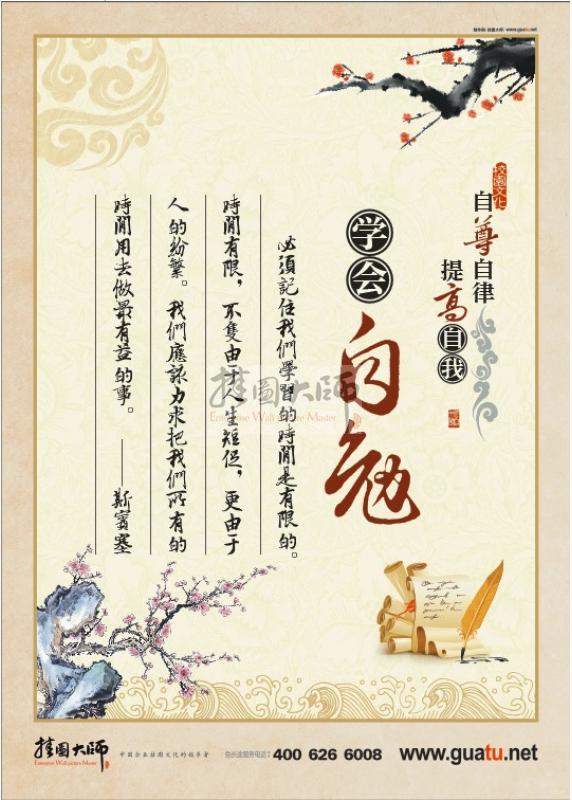 www.guatu.net
校园文化
自尊自律
提高自我
学会
自勉
必須記住我們學習的時間是有限的。
時間有限，不隻由于人生短促，更由于
人的紛繁。我們應該力求把我們所有的
時間用去做最有益的事。——斯賓塞
挂圖大師
Enterprise Wall-picture Master
挂圖大師
Enterprise Wall-picture Master
中国企业挂图文化的领导者
免长途服务电话：400 626 6008
www.guatu.net